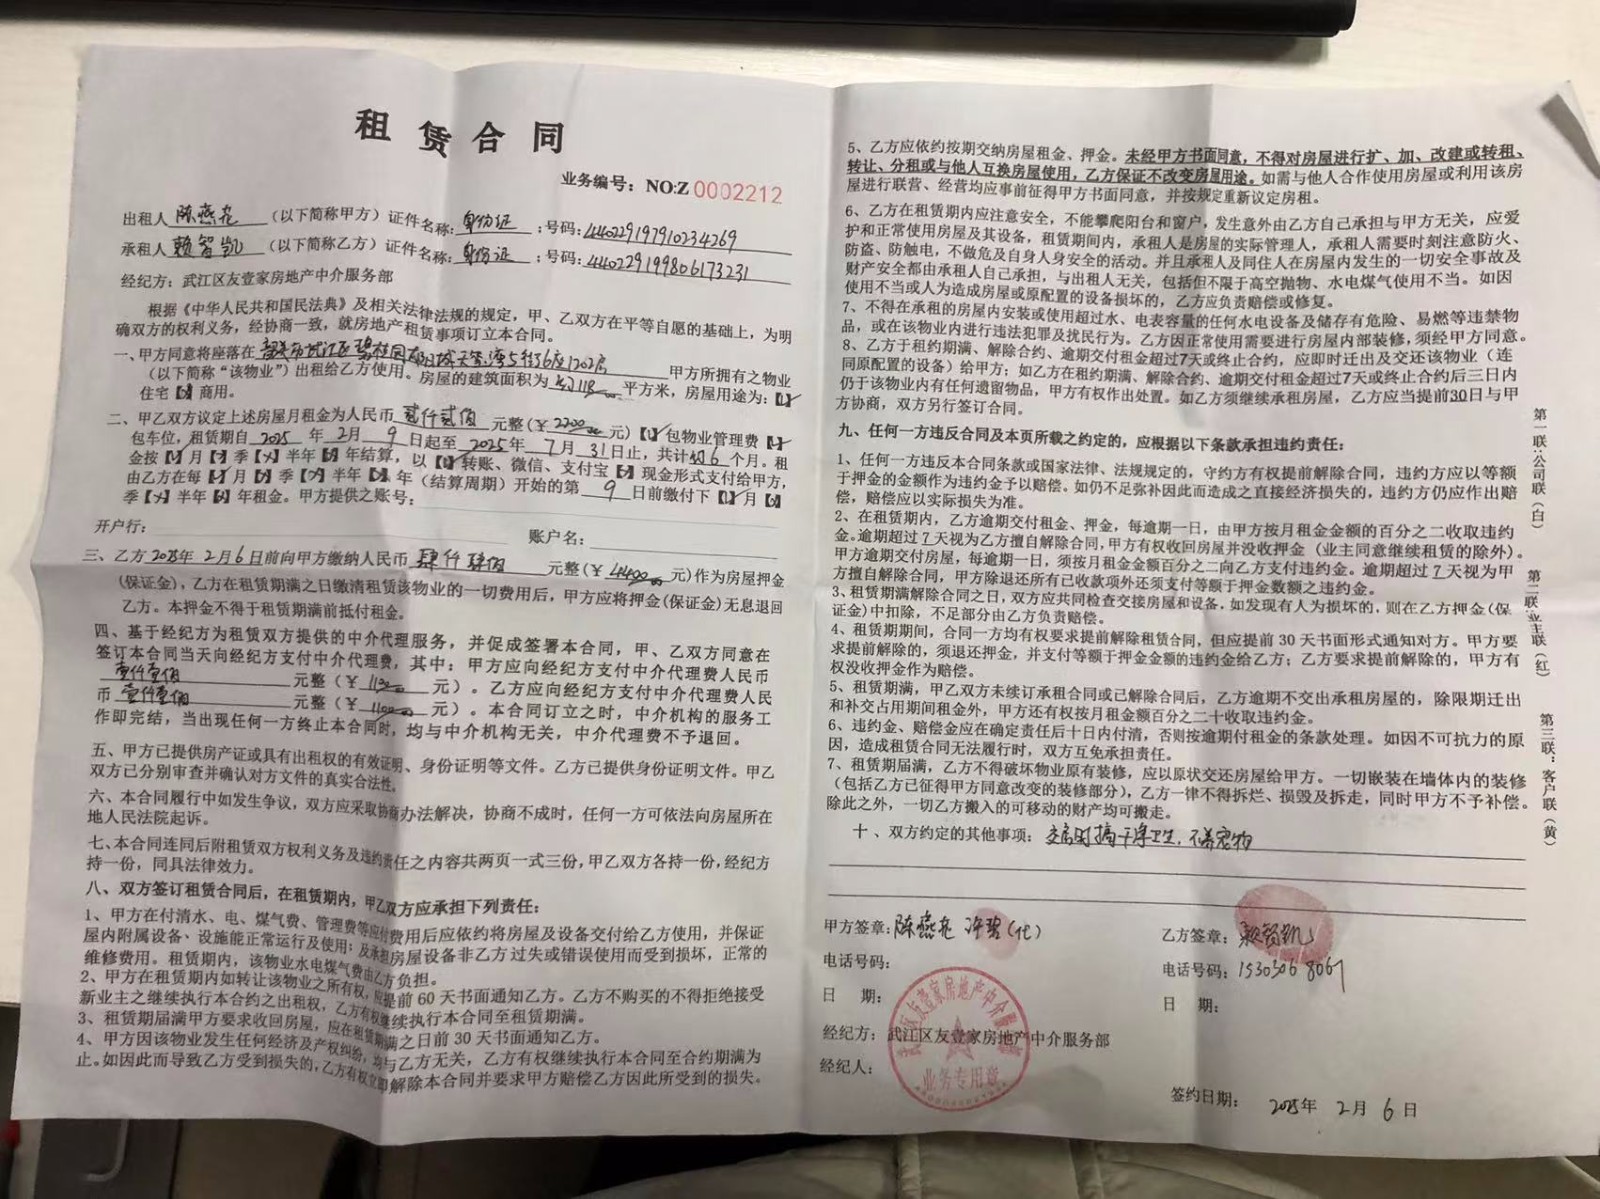 租赁合同
业务编号：NO:Z 0002212
出租人 陈燕花 （以下简称甲方）证件名称：身份证；号码：440229197910234269
承租人 赖智凯 （以下简称乙方）证件名称：身份证；号码：440229199806173231
经纪方：武江区友壹家房地产中介服务部
根据《中华人民共和国民法典》及相关法律法规的规定，甲、乙双方在平等自愿的基础上，为明
确双方的权利义务，经协商一致，就房地产租赁事项订立本合同。
一、甲方同意将座落在 韶关市武江区碧桂园 街6座1202房 甲方所拥有之物业
（以下简称“该物业”）出租给乙方使用。房屋的建筑面积为 约118 平方米，房屋用途为：【√】
住宅【】商用。
二、甲乙双方议定上述房屋月租金为人民币 贰仟贰佰 元整（￥2200元）【√】包物业管理费【√】
包车位，租赁期自 2025 年 2月 9 日起至 2025年 7月 31日止，共计约6个月。租
金按【√】月【】季【】半年【】年结算，以【√】转账、微信、支付宝【】现金形式支付给甲方，
由乙方在每【√】月【】季【】半年【】年（结算周期）开始的第 9 日前缴付下【√】月【】
季【】半年【】年租金。甲方提供之账号：
开户行： 账户名：
三、乙方 2025年 2月6日前向甲方缴纳人民币 肆仟肆佰 元整（￥4400元）作为房屋押金
（保证金），乙方在租赁期满之日缴清租赁该物业的一切费用后，甲方应将押金(保证金)无息退回
乙方。本押金不得于租赁期满前抵付租金。
四、基于经纪方为租赁双方提供的中介代理服务，并促成签署本合同，甲、乙双方同意在
签订本合同当天向经纪方支付中介代理费，其中：甲方应向经纪方支付中介代理费人民币
壹仟壹佰 元整（￥1100元）。乙方应向经纪方支付中介代理费人民
币 壹仟壹佰 元整（￥1100元）。本合同订立之时，中介机构的服务工
作即完结，当出现任何一方终止本合同时，均与中介机构无关，中介代理费不予退回。
五、甲方已提供房产证或具有出租权的有效证明、身份证明等文件。乙方已提供身份证明文件。甲乙
双方已分别审查并确认对方文件的真实合法性。
六、本合同履行中如发生争议，双方应采取协商办法解决，协商不成时，任何一方可依法向房屋所在
地人民法院起诉。
七、本合同连同后附租赁双方权利义务及违约责任之内容共两页一式三份，甲乙双方各持一份，经纪方
持一份，同具法律效力。
八、双方签订租赁合同后，在租赁期内，甲乙双方应承担下列责任：
1、甲方在付清水、电、煤气费、管理费等应付费用后应依约将房屋及设备交付给乙方使用，并保证
屋内附属设备、设施能正常运行及使用；及承租房屋设备非乙方过失或错误使用而受到损坏，正常的
维修费用。租赁期内，该物业水电煤气费由乙方负担。
2、甲方在租赁期内如转让该物业之所有权，应提前60天书面通知乙方。乙方不购买的不得拒绝接受
新业主之继续执行本合约之出租权，乙方有权继续执行本合同至租赁期满。
3、租赁期届满甲方要求收回房屋，应在租赁期满之日前30天书面通知乙方。
4、甲方因该物业发生任何经济及产权纠纷，均与乙方无关，乙方有权继续执行本合同至合约期满为
止。如因此而导致乙方受到损失的，乙方有权立即解除本合同并要求甲方赔偿乙方因此所受到的损失。
5、乙方应依约按期交纳房屋租金、押金。未经甲方书面同意，不得对房屋进行扩、加、改建或转租、
转让、分租或与他人互换房屋使用，乙方保证不改变房屋用途。如需与他人合作使用房屋或利用该房
屋进行联营、经营均应事前征得甲方书面同意，并按规定重新议定房租。
6、乙方在租赁期内应注意安全，不能攀爬阳台和窗户，发生意外由乙方自己承担与甲方无关，应爱
护和正常使用房屋及其设备，租赁期间内，承租人是房屋的实际管理人，承租人需要时刻注意防火、
防盗、防触电，不做危及自身人身安全的活动。并且承租人及同住人在房屋内发生的一切安全事故及
财产安全都由承租人自己承担，与出租人无关，包括但不限于高空抛物、水电煤气使用不当。如因
使用不当或人为造成房屋或原配置的设备损坏的，乙方应负责赔偿或修复。
7、不得在承租的房屋内安装或使用超过水、电表容量的任何水电设备及储存有危险、易燃等违禁物
品，或在该物业内进行违法犯罪及扰民行为。乙方因正常使用需要进行房屋内部装修，须经甲方同意。
8、乙方于租约期满、解除合约、逾期交付租金超过7天或终止合约，应即时迁出及交还该物业（连
同原配置的设备）给甲方；如乙方在租约期满、解除合约、逾期交付租金超过7天或终止合约后三日内
仍于该物业内有任何遗留物品，甲方有权作出处置。如乙方须继续承租房屋，乙方应当提前30日与甲
方协商，双方另行签订合同。
九、任何一方违反合同及本页所载之约定的，应根据以下条款承担违约责任：
1、任何一方违反本合同条款或国家法律、法规规定的，守约方有权提前解除合同，违约方应以等额
于押金的金额作为违约金予以赔偿。如仍不足弥补因此而造成之直接经济损失的，违约方仍应作出赔
偿，赔偿应以实际损失为准。
2、在租赁期内，乙方逾期交付租金、押金，每逾期一日，由甲方按月租金金额的百分之二收取违约
金。逾期超过7天视为乙方擅自解除合同，甲方有权收回房屋并没收押金（业主同意继续租赁的除外）。
甲方逾期交付房屋，每逾期一日，须按月租金金额百分之二向乙方支付违约金。逾期超过7天视为甲
方擅自解除合同，甲方除退还所有已收款项外还须支付等额于押金数额之违约金。
3、租赁期满解除合同之日，双方应共同检查交接房屋和设备，如发现有人为损坏的，则在乙方押金(保
证金)中扣除，不足部分由乙方负责赔偿。
4、租赁期期间，合同一方均有权要求提前解除租赁合同，但应提前30天书面形式通知对方。甲方要
求提前解除的，须退还押金，并支付等额于押金金额的违约金给乙方；乙方要求提前解除的，甲方有
权没收押金作为赔偿。
5、租赁期满，甲乙双方未续订承租合同或已解除合同后，乙方逾期不交出承租房屋的，除限期迁出
和补交占用期间租金外，甲方还有权按月租金额百分之二十收取违约金。
6、违约金、赔偿金应在确定责任后十日内付清，否则按逾期付租金的条款处理。如因不可抗力的原
因，造成租赁合同无法履行时，双方互免承担责任。
7、租赁期届满，乙方不得破坏物业原有装修，应以原状交还房屋给甲方。一切嵌装在墙体内的装修
(包括乙方已征得甲方同意改变的装修部分)，乙方一律不得拆烂、损毁及拆走，同时甲方不予补偿。
除此之外，一切乙方搬入的可移动的财产均可搬走。
十、双方约定的其他事项：交房时搞干净卫生，不养宠物
甲方签章：陈燕花 许碧(代)
乙方签章：赖智凯
电话号码：
电话号码：15303068067
日 期：
日 期：
经纪方：武江区友壹家房地产中介服务部
经纪人：
武江区友壹家房地产中介服务部
业务专用章
签约日期： 2025年 2月 6日
第一联：公司联（白）
第二联：业主联（红）
第三联：客户联（黄）